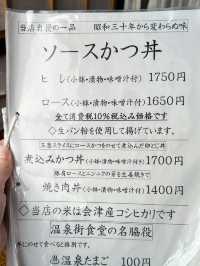 当店自慢の一品　昭和三十年から変わらぬ味
ソースかつ丼
ヒレ(小鉢・漬物・味噌汁付) 1750円
ロース(小鉢・漬物・味噌汁付) 1650円
全て消費税10%税込み価格です
◇生パン粉を使用して揚げています。
煮込みかつ丼(小鉢・漬物・味噌汁付) 1700円
焼き肉丼(小鉢・漬物・味噌汁付) 1400円
◇当店の米は会津産コシヒカリです
温泉街食堂の名脇役
丼にのせて食べると格別です。
♨温泉たまご 100円